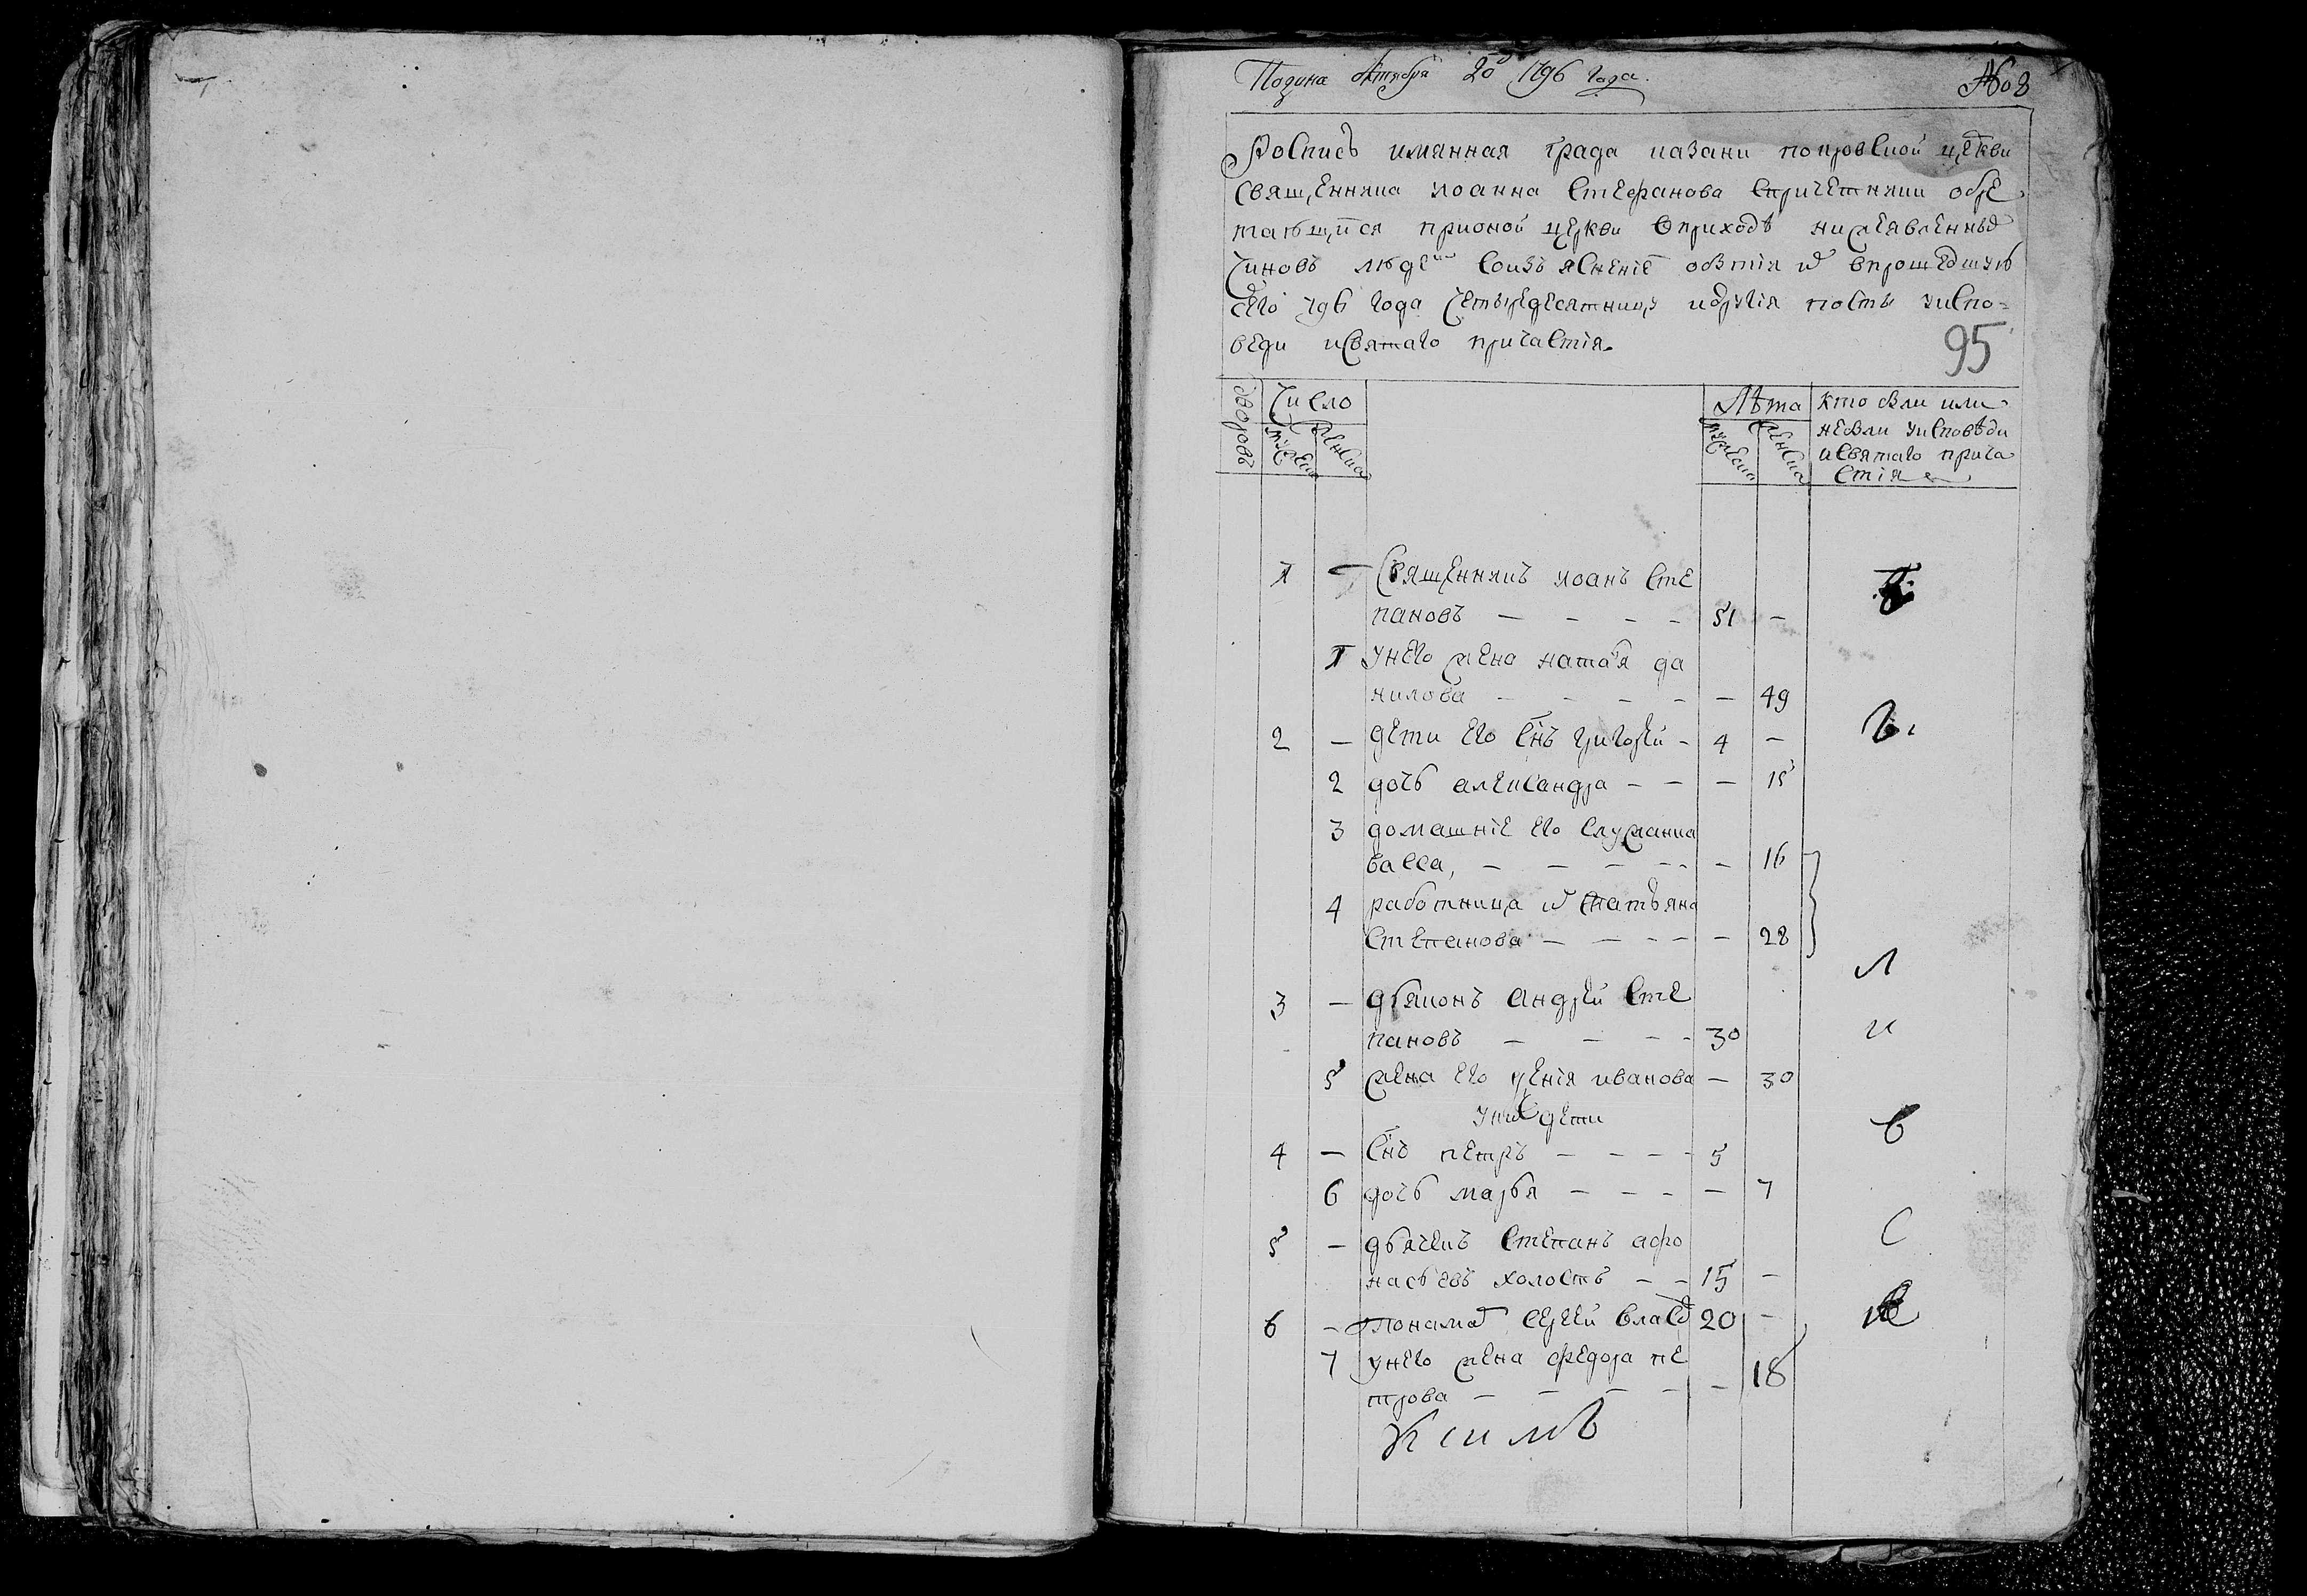 Подина октября 20д 1796 года.
№ 8
Роспись имянная града казани покровской црккви
священника иоанна стефанова спричетники обре
тающихся прионой церкви вприходѣ нижеявленныхъ
чиновъ людеи соизъяснениемъ обытiя ихъ впрошедшую
сего 796 года четыредесятницу идругiя посты уиспо-
веди исвятаго причастiя.
95
дворовъ
Число
мужеска
женска
Лѣта
мужеска
женска
кто были или
небыли уисповѣди
исвятаго прича
стiя
1 — Священникъ иоанъ сте
пановъ — — — — 51 —
1 унего жена наталiя да
нилова — — — — — 49
2 — дети его снъ григорей - 4 —
2 дочь александра — — — 15
3 домашнiе его служанка
васса, — — — — — 16
4 работница татьяна
степанова — — — — — 28
3 — дьяконъ андрей сте
пановъ — — — — 30
5 жена его ксенiя иванова — 30
уних дети
4 — снъ петръ — — — — 5
6 дочь марья — — — — 7
5 — дьячекъ степанъ афо
насьевъ холостъ — — 15 —
6 — понамар сергей власов 20 —
7 унего жена федора пе
трова — — — — — 18
Б
ы
л
и
в
с
е
Ксимъ